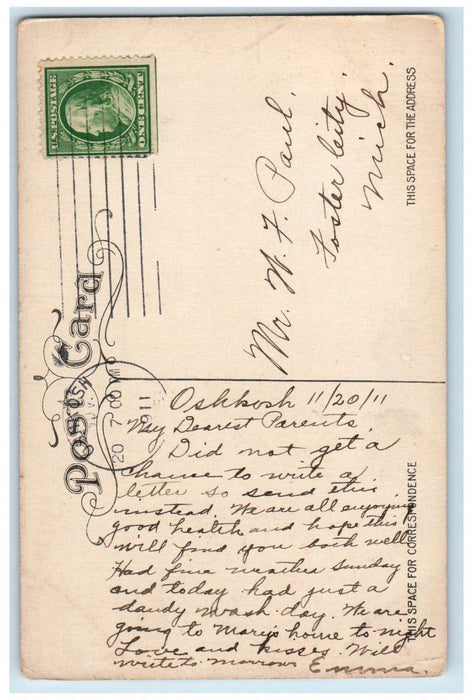 U.S. POSTAGE
ONE CENT
Post Card
THIS SPACE FOR THE ADDRESS
Mr. W. F. Paul.
Foster City,
Mich.
20 7 00
1911
THIS SPACE FOR CORRESPONDENCE
Oshkosh 11/20/11
My Dearest Parents.
Did not get a
chance to write a
letter so send this
instead. We are all enjoying
good health and hope this
will find you both well
Had fine weather Sunday
and today had just a
dandy wash day. We are
going to Mary's home to night
Love and kisses. Will
write to morrow Emma.